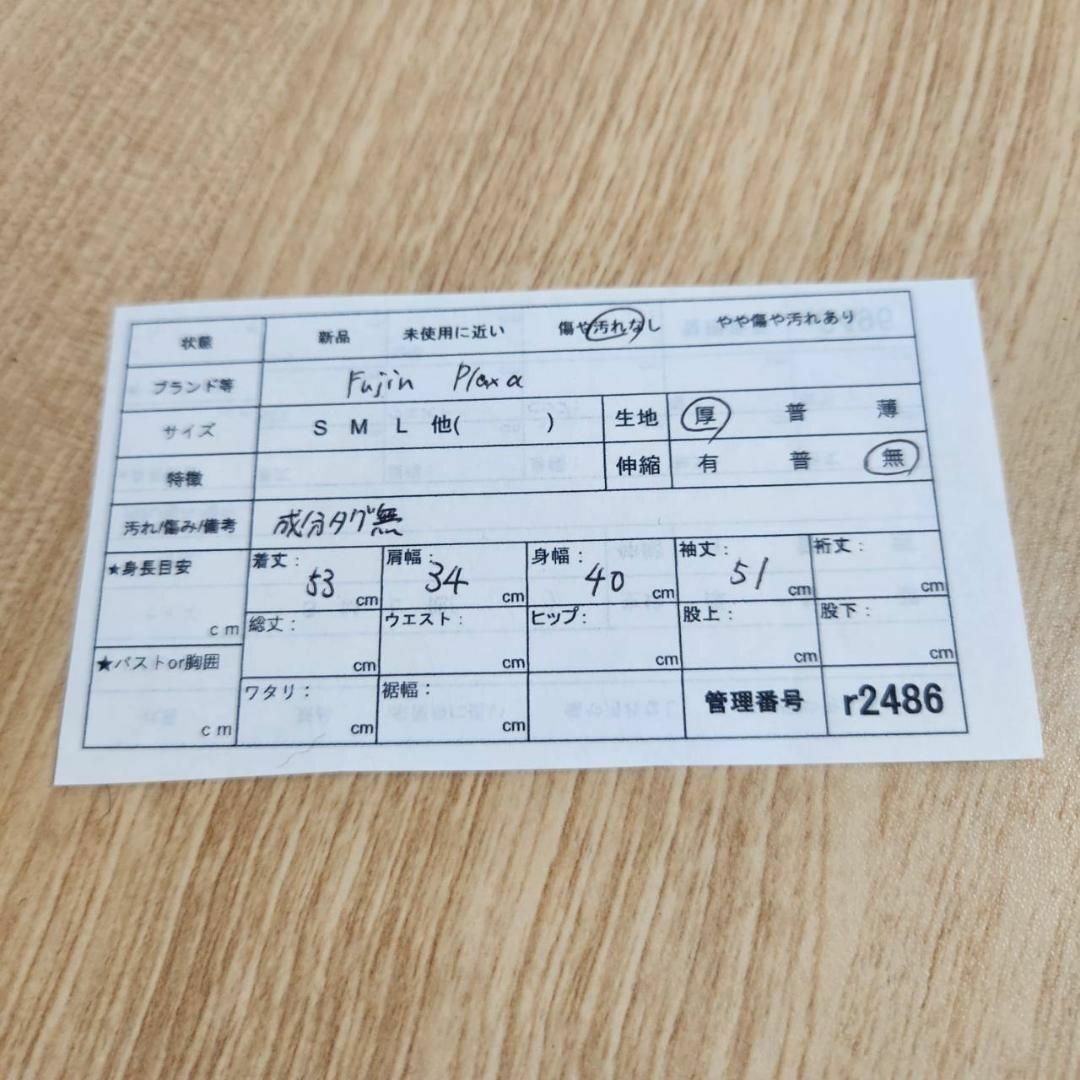 状態 新品 未使用に近い 傷や汚れなし やや傷や汚れあり
ブランド等 Fujin Plaxa
サイズ S M L 他( ) 生地 厚 普 薄
特徴 伸縮 有 普 無
汚れ/傷み/備考 成分タグ無
★身長目安 cm 着丈: 53 cm 肩幅: 34 cm 身幅: 40 cm 袖丈: 51 cm 裄丈: cm
総丈: cm ウエスト: cm ヒップ: cm 股上: cm 股下: cm
★バストor胸囲 cm ワタリ: cm 裾幅: cm 管理番号 r2486